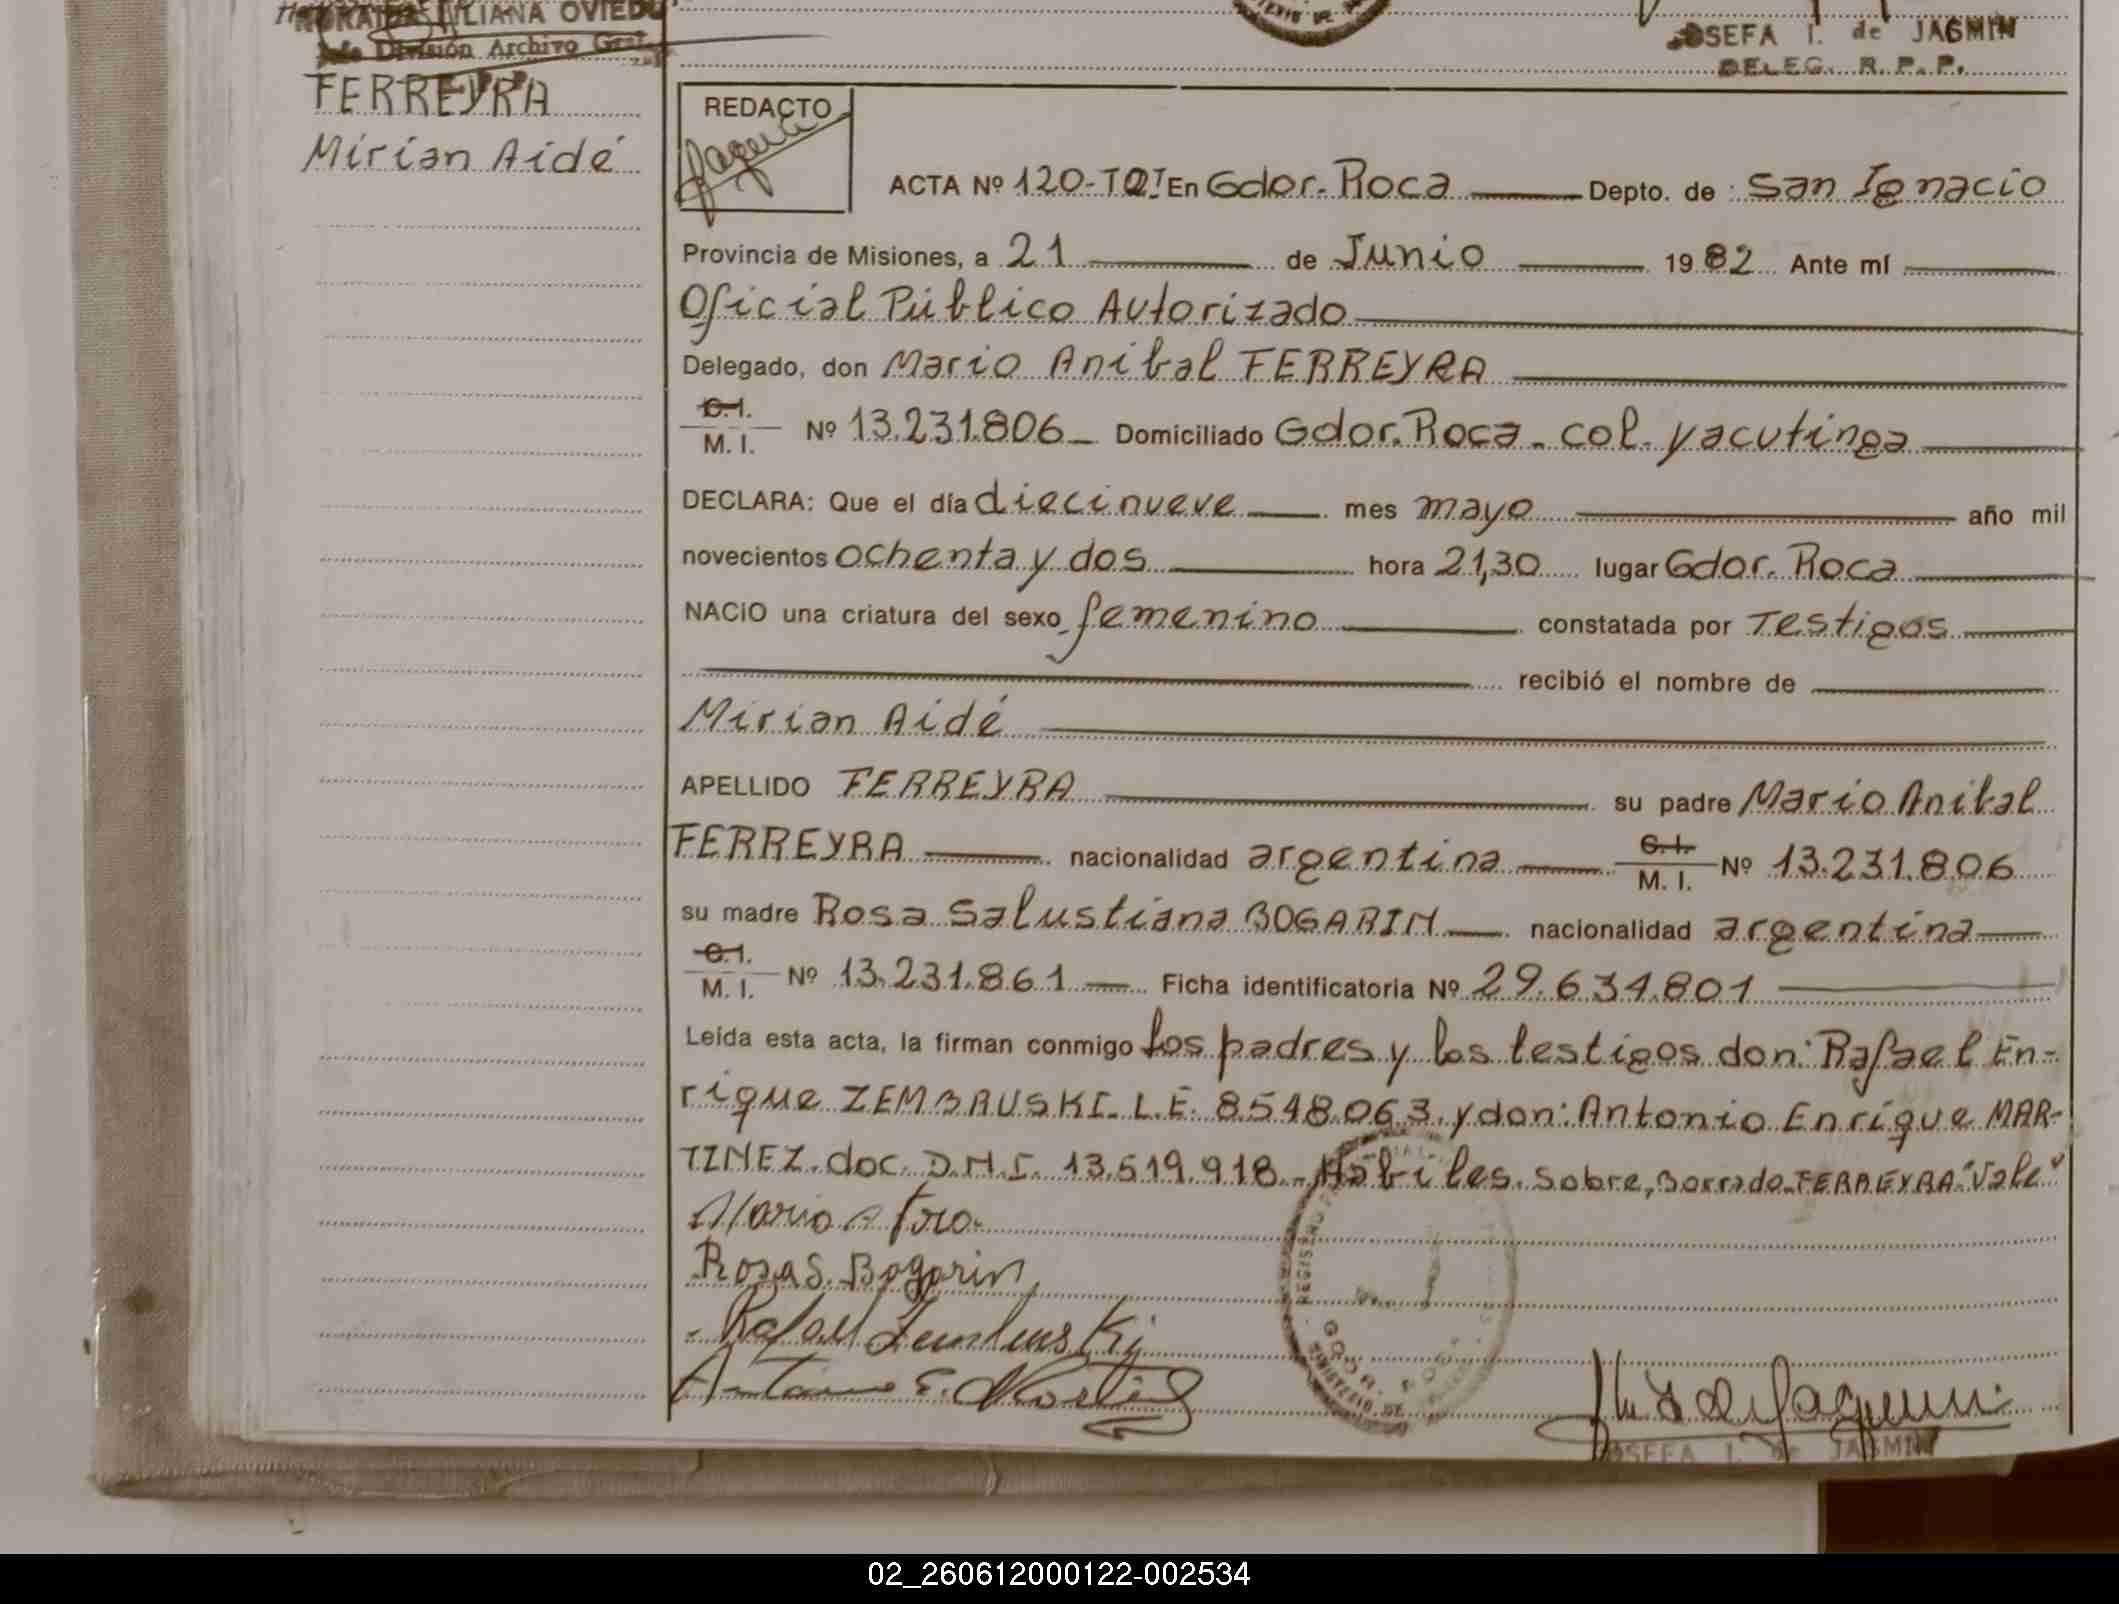 LILIANA OVIEDO
Jefe División Archivo Gral.
JOSEFA I. de JASMIN
DELEG. R. P. P.
FERREYRA
Mirian Aidé
REDACTO
ACTA Nº 120-TOI En Gdor. Roca Depto. de San Ignacio
Provincia de Misiones, a 21 de Junio 1982 Ante mí
Oficial Público Autorizado
Delegado, don Mario Anibal FERREYRA
C.I.
M. I. Nº 13.231.806 Domiciliado Gdor. Roca - col. yacutinga
DECLARA: Que el día diecinueve mes mayo año mil
novecientos ochenta y dos hora 21,30 lugar Gdor. Roca
NACIO una criatura del sexo femenino constatada por Testigos
recibió el nombre de
Mirian Aidé
APELLIDO FERREYRA su padre Mario Anibal
FERREYRA nacionalidad argentina C.I. M. I. Nº 13.231.806
su madre Rosa Salustiana BOGARIN nacionalidad argentina
C.I.
M. I. Nº 13.231.861 Ficha identificatoria Nº 29.634.801
Leída esta acta, la firman conmigo los padres y los testigos don: Rafael En-
rique ZEMBRUSKI. L.E. 8.548.063. y don: Antonio Enrique MAR-
TINEZ. doc. D.N.I. 13.519.918.- Habiles. Sobre, Borrado. FERREYRA "Vale"
Mario A Fro.
Rosa S. Bogarin
Rafael Zembruski
Antonio E. Martinez
JOSEFA I. de JASMIN
02_260612000122-002534